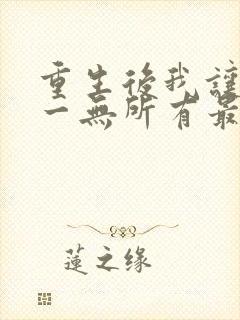 重生後我讓
一無所有最
蓮之缘